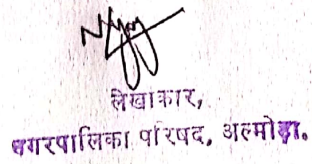 लेखाकार,
नगरपालिका परिषद, अल्मोड़ा。